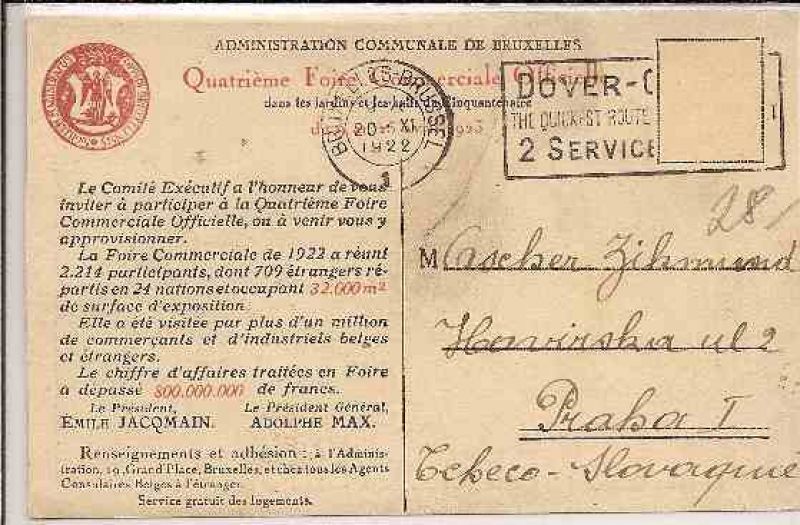 ADMINISTRATION COMMUNALE DE BRUXELLES
Quatrième Foire Commerciale Officielle
dans les jardins et les halls du Cinquantenaire
1923
BRUSSEL
20- XI
1922
1
DOVER-
THE QUICKEST ROUTE
2 SERVICE
Le Comité Exécutif a l'honneur de vous
inviter à participer à la Quatrième Foire
Commerciale Officielle, ou à venir vous y
approvisionner.
La Foire Commerciale de 1922 a réuni
2.214 participants, dont 709 étrangers ré-
partis en 24 nations et occupant 32.000 m²
de surface d'exposition.
Elle a été visitée par plus d'un million
de commerçants et d'industriels belges
et étrangers.
Le chiffre d'affaires traitées en Foire
a dépassé 800.000.000 de francs.
Le Président, Le Président Général,
EMILE JACQMAIN. ADOLPHE MAX.
Renseignements et adhésion : à l'Adminis-
tration, 19, Grand'Place, Bruxelles, et chez tous les Agents
Consulaires Belges à l'étranger.
Service gratuit des logements.
28/
M Ascher Zikmund
Hawirska ul 2
Praha I
Tcheco-Slovaquie